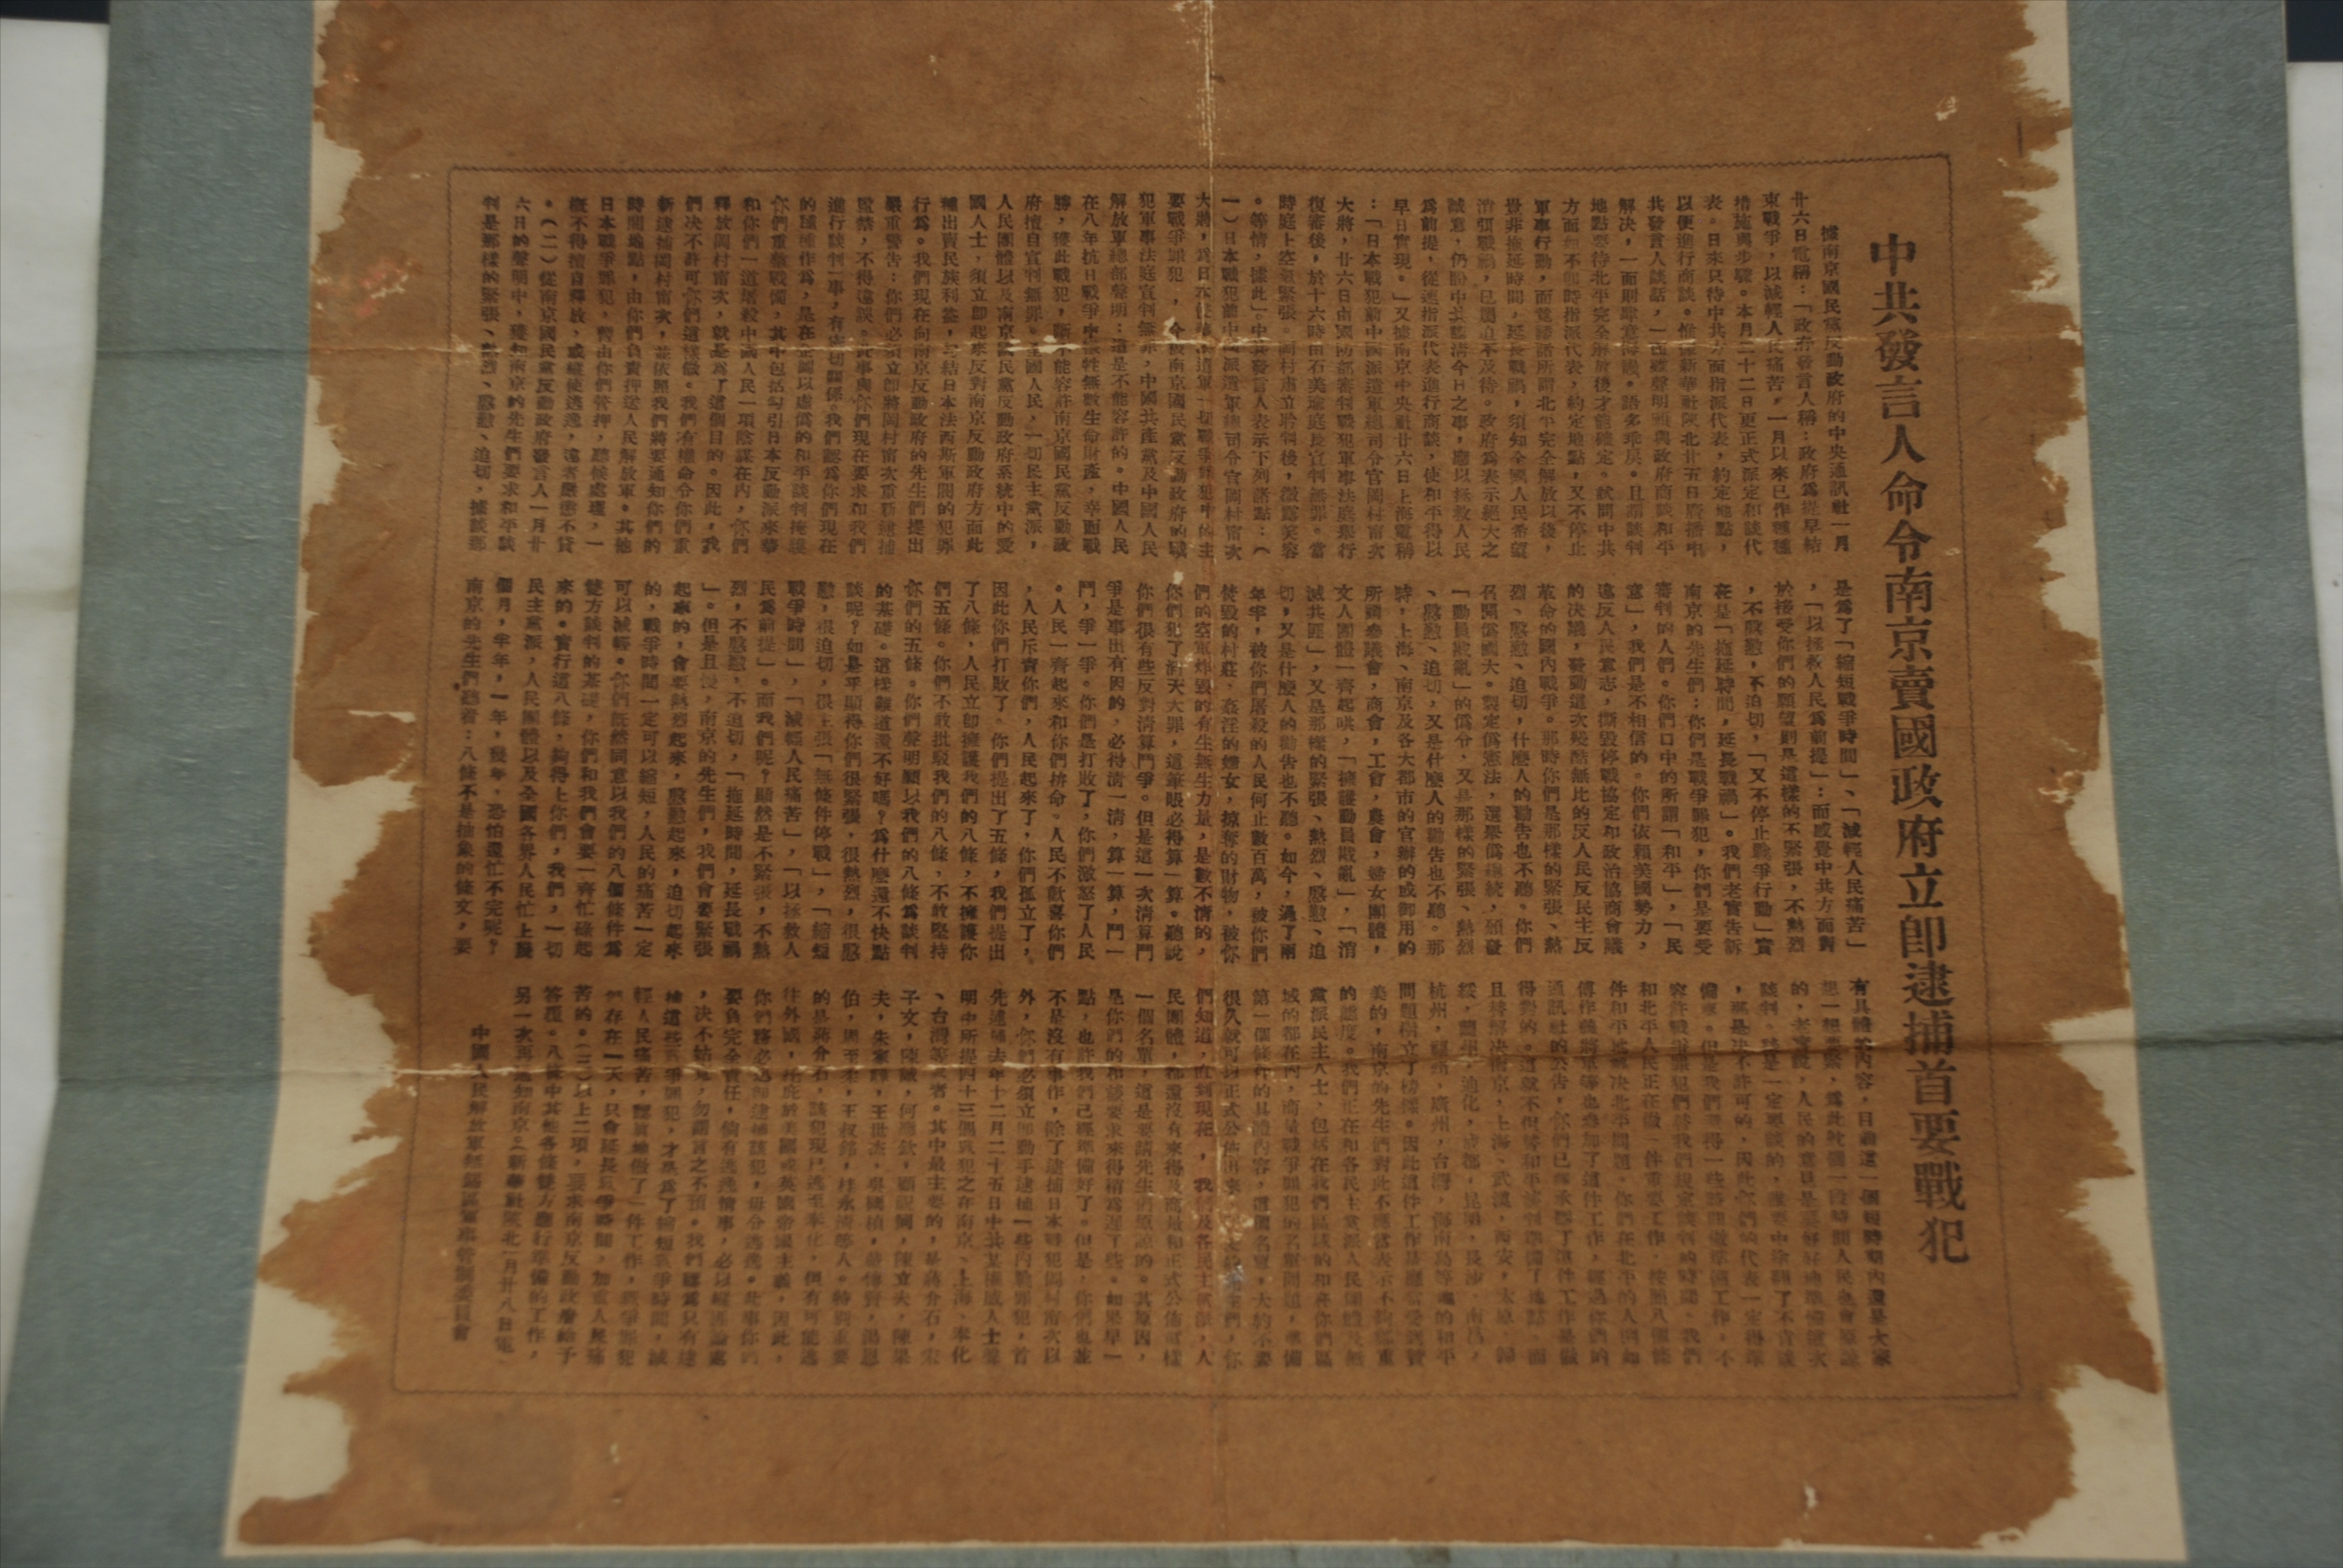 中共發言人命令南京賣國政府立卽逮捕首要戰犯
據南京國民黨反動政府的中央通訊社一月
廿六日電稱:「政府發言人稱:政府爲提早結
束戰爭,以減輕人民痛苦,一月以來已作種種
措施與步驟。本月二十二日更正式派定和談代
表。日來只待中共方面指派代表,約定地點,
以便進行商談。惟據新華社陝北廿五日廣播中
共發言人談話,一面雖聲明願與政府商談和平
解決,一面則肆意侮謾。語多乖戾。且謂談判
地點要待北平完全解放後才能確定。試問中共
方面如不卽時指派代表,約定地點,又不停止
軍事行動,而諉諸所謂北平完全解放以後,
豈非拖延時間,延長戰禍,須知全國人民希望
消弭戰禍,已迫不及待。政府爲表示絕大之
誠意,仍盼中共認淸今日之事,應以拯救人民
爲前提,從速指派代表進行商談,使和平得以
早日實現。」又據南京中央社廿六日上海電稱
:「日本戰犯前中國派遣軍總司令官岡村甯次
大將,廿六日由國防部審判戰犯軍事法庭舉行
復審後,於十六時由石美瑜庭長宣判無罪。當
時庭上空氣緊張。岡村肅立聆判後,微露笑容
。等情,據此」中共發言人表示下列諸點:(
一)日本戰犯前中國派遣軍總司令官岡村甯次
大將,爲日本侵華派遣軍一切戰爭罪犯中的主
要戰爭罪犯,今被南京國民黨反動政府的戰
犯軍事法庭宣判無罪,中國共產黨及中國人民
解放軍總部聲明:這是不能容許的。中國人民
在八年抗日戰爭中犧牲無數生命財產,幸而戰
勝,獲此戰犯,斷不能容許南京國民黨反動政
府擅自宣判無罪。全國人民,一切民主黨派,
人民團體以及南京國民黨反動政府系統中的愛
國人士,須立卽起來反對南京反動政府方面此
種出賣民族利益,勾結日本法西斯軍閥的犯罪
行爲。我們現在向南京反動政府的先生們提出
嚴重警告:你們必須立卽將岡村甯次重新逮捕
監禁,不得違誤。此事與你們現在要求和我們
進行談判一事,有密切關係。我們認爲你們現在
的種種作爲,是在企圖以虛僞的和平談判掩護
你們重整戰備,其中包括勾引日本反動派來華
和你們一道屠殺中國人民一項陰謀在內,你們
釋放岡村甯次,就是爲了這個目的。因此,我
們决不許可你們這樣做。我們有權命令你們重
新逮捕岡村甯次,並依照我們將要通知你們的
時間地點,由你們負責押送人民解放軍。其他
日本戰爭罪犯,暫由你們管押,聽候處理,一
概不得擅自釋放,或縱使逃逸,違者嚴懲不貸
。(二)從南京國民黨反動政府發言人一月廿
六日的聲明中,獲知南京的先生們要求和平談
判是那樣的緊張、熱烈、慇懃、迫切,據談都
是爲了「縮短戰爭時間」、「減輕人民痛苦」
,「以拯救人民爲前提」:而感覺中共方面對
於接受你們的願望則是這樣的不緊張,不熱烈
,不慇懃,不迫切,「又不停止戰爭行動」實
在是「拖延時間,延長戰禍」。我們老實告訴
南京的先生們:你們是戰爭罪犯,你們是要受
審判的人們。你們口中的所謂「和平」,「民
意」,我們是不相信的。你們依賴美國勢力,
違反人民意志,撕毀停戰協定和政治協商會議
的決議,發動這次殘酷無比的反人民反民主反
革命的國內戰爭。那時你們是那樣的緊張、熱
烈、慇懃、迫切,什麼人的勸告也不聽。你們
召開僞國大。製定僞憲法,選舉僞總統,頒發
「動員戡亂」的僞令,又是那樣的緊張、熱烈
、慇懃、迫切,又是什麼人的勸告也不聽。那
時,上海、南京及各大都市的官辦的或御用的
所謂參議會,商會,工會,農會,婦女團體,
文人團體一齊起哄,「擁護動員戡亂」,「消
滅共匪」,又是那樣的緊張、熱烈、慇懃、迫
切,又是什麼人的勸告也不聽。如今,過了兩
年半,被你們屠殺的人民何止數百萬,被你們
焚毀的村莊,姦淫的婦女,掠奪的財物,被你
們的空軍炸毀的有生無生力量,是數不清的,
你們犯了滔天大罪,這筆賬必得算一算。聽說
你們很有些反對淸算鬥爭。但是這一次淸算鬥
爭是事出有因的,必得淸一淸,算一算,鬥一
鬥,爭一爭。你們是打敗了,你們激怒了人民
。人民一齊起來和你們拚命。人民不歡喜你們
,人民斥責你們,人民起來了,你們孤立了,
因此你們打敗了。你們提出了五條,我們提出
了八條,人民立卽擁護我們的八條,不擁護你
們五條。你們不敢批駁我們的八條,不敢堅持
你們的五條。你們聲明願以我們的八條爲談判
的基礎。這樣難道還不好嗎?爲什麼還不快點
談呢?如是乎顯得你們很緊張,很熱烈,很慇
懃,很迫切,很主張「無條件停戰」,「縮短
戰爭時間」,「減輕人民痛苦」,「以拯救人
民爲前提」。而我們呢?顯然是不緊張,不熱
烈,不慇懃,不迫切,「拖延時間,延長戰禍
」。但是且慢,南京的先生們,我們會要緊張
起來的,會要熱烈起來,慇懃起來,迫切起來
的,戰爭時間一定可以縮短,人民的痛苦一定
可以減輕。你們旣然同意以我們的八個條件爲
雙方談判的基礎,你們和我們會要一齊忙碌起
來的。實行這八條,夠得上你們,我們,一切
民主黨派,人民團體以及全國各界人民忙上幾
個月,半年,一年,幾年,恐怕還忙不完呢?
南京的先生們聽着:八條不是抽象的條文,要
有具體的內容,目前這一個短時期內還是大家
想一想要緊,爲此耽擱一段時間人民也會原諒
的,老實說,人民的意見是要好好地準備這次
談判。談是一定要談的,誰要中途翻了不肯談
,那是决不許可的,因此你們的代表一定得準
備來。但是我們還得一些時間做準備工作,不
容許戰爭罪犯們替我們規定談判的時間。我們
和北平人民正在做一件重要工作,按照八個條
件和平解決北平問題。你們在北平的人們如
傅作義將軍等也參加了這件工作,經過你們的
通訊社的公告,你們已經承認了這件工作是做
得對的。這就不但替和平談判準備了地點,而
且替解決南京,上海、武漢,西安,太原,歸
綏,蘭州,迪化,成都,昆明,長沙,南昌,
杭州,福州,廣州,台灣,海南島等處的和平
問題樹立了榜樣。因此這件工作是應當受到贊
美的,南京的先生們對此不應當表示不夠鄭重
的態度。我們正在和各民主黨派人民團體及無
黨派民主人士、包括在我們區域的和在你們區
域的都在內,商量戰爭罪犯的名單問題,準備
第一個條件的具體內容,這個名單,大約不要
很久就可以正式公佈出來
們知道,直到現在,我們及各民主黨派,人
民團體,都還沒有來得及商量和正式公佈這樣
一個名單,這是要請先生們原諒的。其原因,
是你們的和談要求來得稍爲遲了些。如果早一
點,也許我們已經準備好了。但是,你們也並
不是沒有事作,除了逮捕日本戰犯岡村甯次以
外,你們必須立卽動手逮捕一些內戰罪犯,首
先逮捕去年十二月二十五日中共某權威人士聲
明中所提四十三個戰犯之在南京、上海、奉化
、台灣等處者。其中最主要的,是蔣介石,宋
子文,陳誠,何應欽,顧祝同,陳立夫,陳果
夫,朱家驊,王世杰,吳國楨,戴傳賢,湯恩
伯,周至柔,王叔銘,桂永淸等人。特別重要
的是蔣介石,該犯現已逃至奉化,很有可能逃
往外國,托庇於美國或英國帝國主義,因此,
你們務必迅卽逮捕該犯,毋令逃逸。此事你們
要負完全責任,倘有逃逸情事,必以縱匪論處
,决不姑寬,勿謂言之不預。我們認爲只有逮
捕這些戰爭罪犯,才是爲了縮短戰爭時間,減
輕人民痛苦,認眞地做了一件工作,戰爭罪犯
們存在一天,只會延長戰爭時間,加重人民痛
苦的。(三)以上二項,要求南京反動政府給予
答覆。八條中其他各條雙方應行準備的工作,
另一次再通知南京。(新華社陝北一月廿八日電)